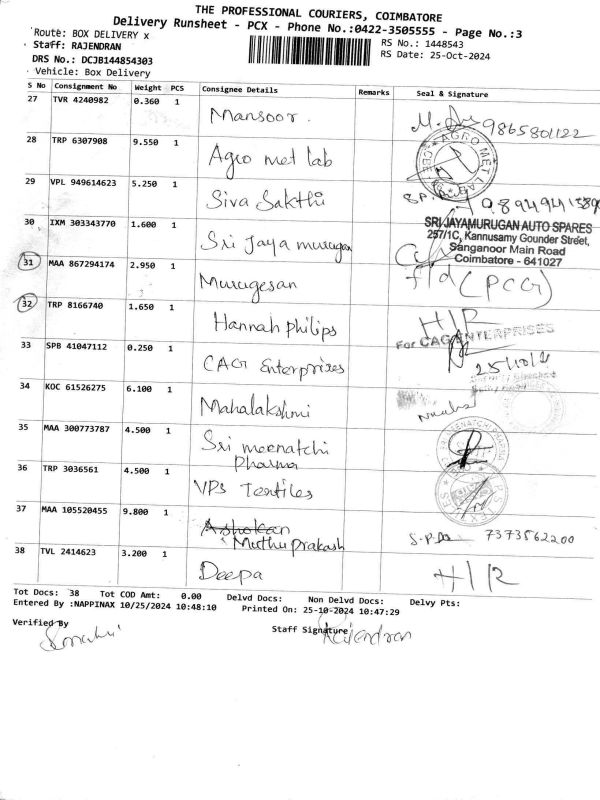 THE PROFESSIONAL COURIERS, COIMBATORE
Delivery Runsheet - PCX - Phone No.:0422-3505555 - Page No.:3
Route: BOX DELIVERY x
Staff: RAJENDRAN
RS No.: 1448543
DRS No.: DCJB144854303
RS Date: 25-Oct-2024
Vehicle: Box Delivery
S No Consignment No Weight PCS Consignee Details Remarks Seal & Signature
27 TVR 4240982 0.360 1 Mansoor. 9865801122
28 TRP 6307908 9.550 1 Agro met lab AGRO MET LAB
29 VPL 949614623 5.250 1 Siva Sakthi
30 IXM 303343770 1.600 1 Sri Jaya murugan
SRI JAYAMURUGAN AUTO SPARES
257/1C, Kannusamy Gounder Street,
Sanganoor Main Road
Coimbatore - 641027
31 MAA 867294174 2.950 1 Murugesan
32 TRP 8166740 1.650 1 Hannah Philips H/R
33 SPB 41047112 0.250 1 CAG Enterprises For CAG ENTERPRISES
34 KOC 61526275 6.100 1 Mahalakshmi
35 MAA 300773787 4.500 1 Sri meenatchi
Pharma
36 TRP 3036561 4.500 1 VPS Textiles
37 MAA 105520455 9.800 1 Ashokan
Muthu prakash 7373562200
38 TVL 2414623 3.200 1 Deepa H/R
Tot Docs: 38 Tot COD Amt: 0.00 Delvd Docs: Non Delvd Docs: Delvy Pts:
Entered By :NAPPINAX 10/25/2024 :10:48:10 Printed On: 25-10-2024 10:47:29
Verified By
Staff Signature Rajendran